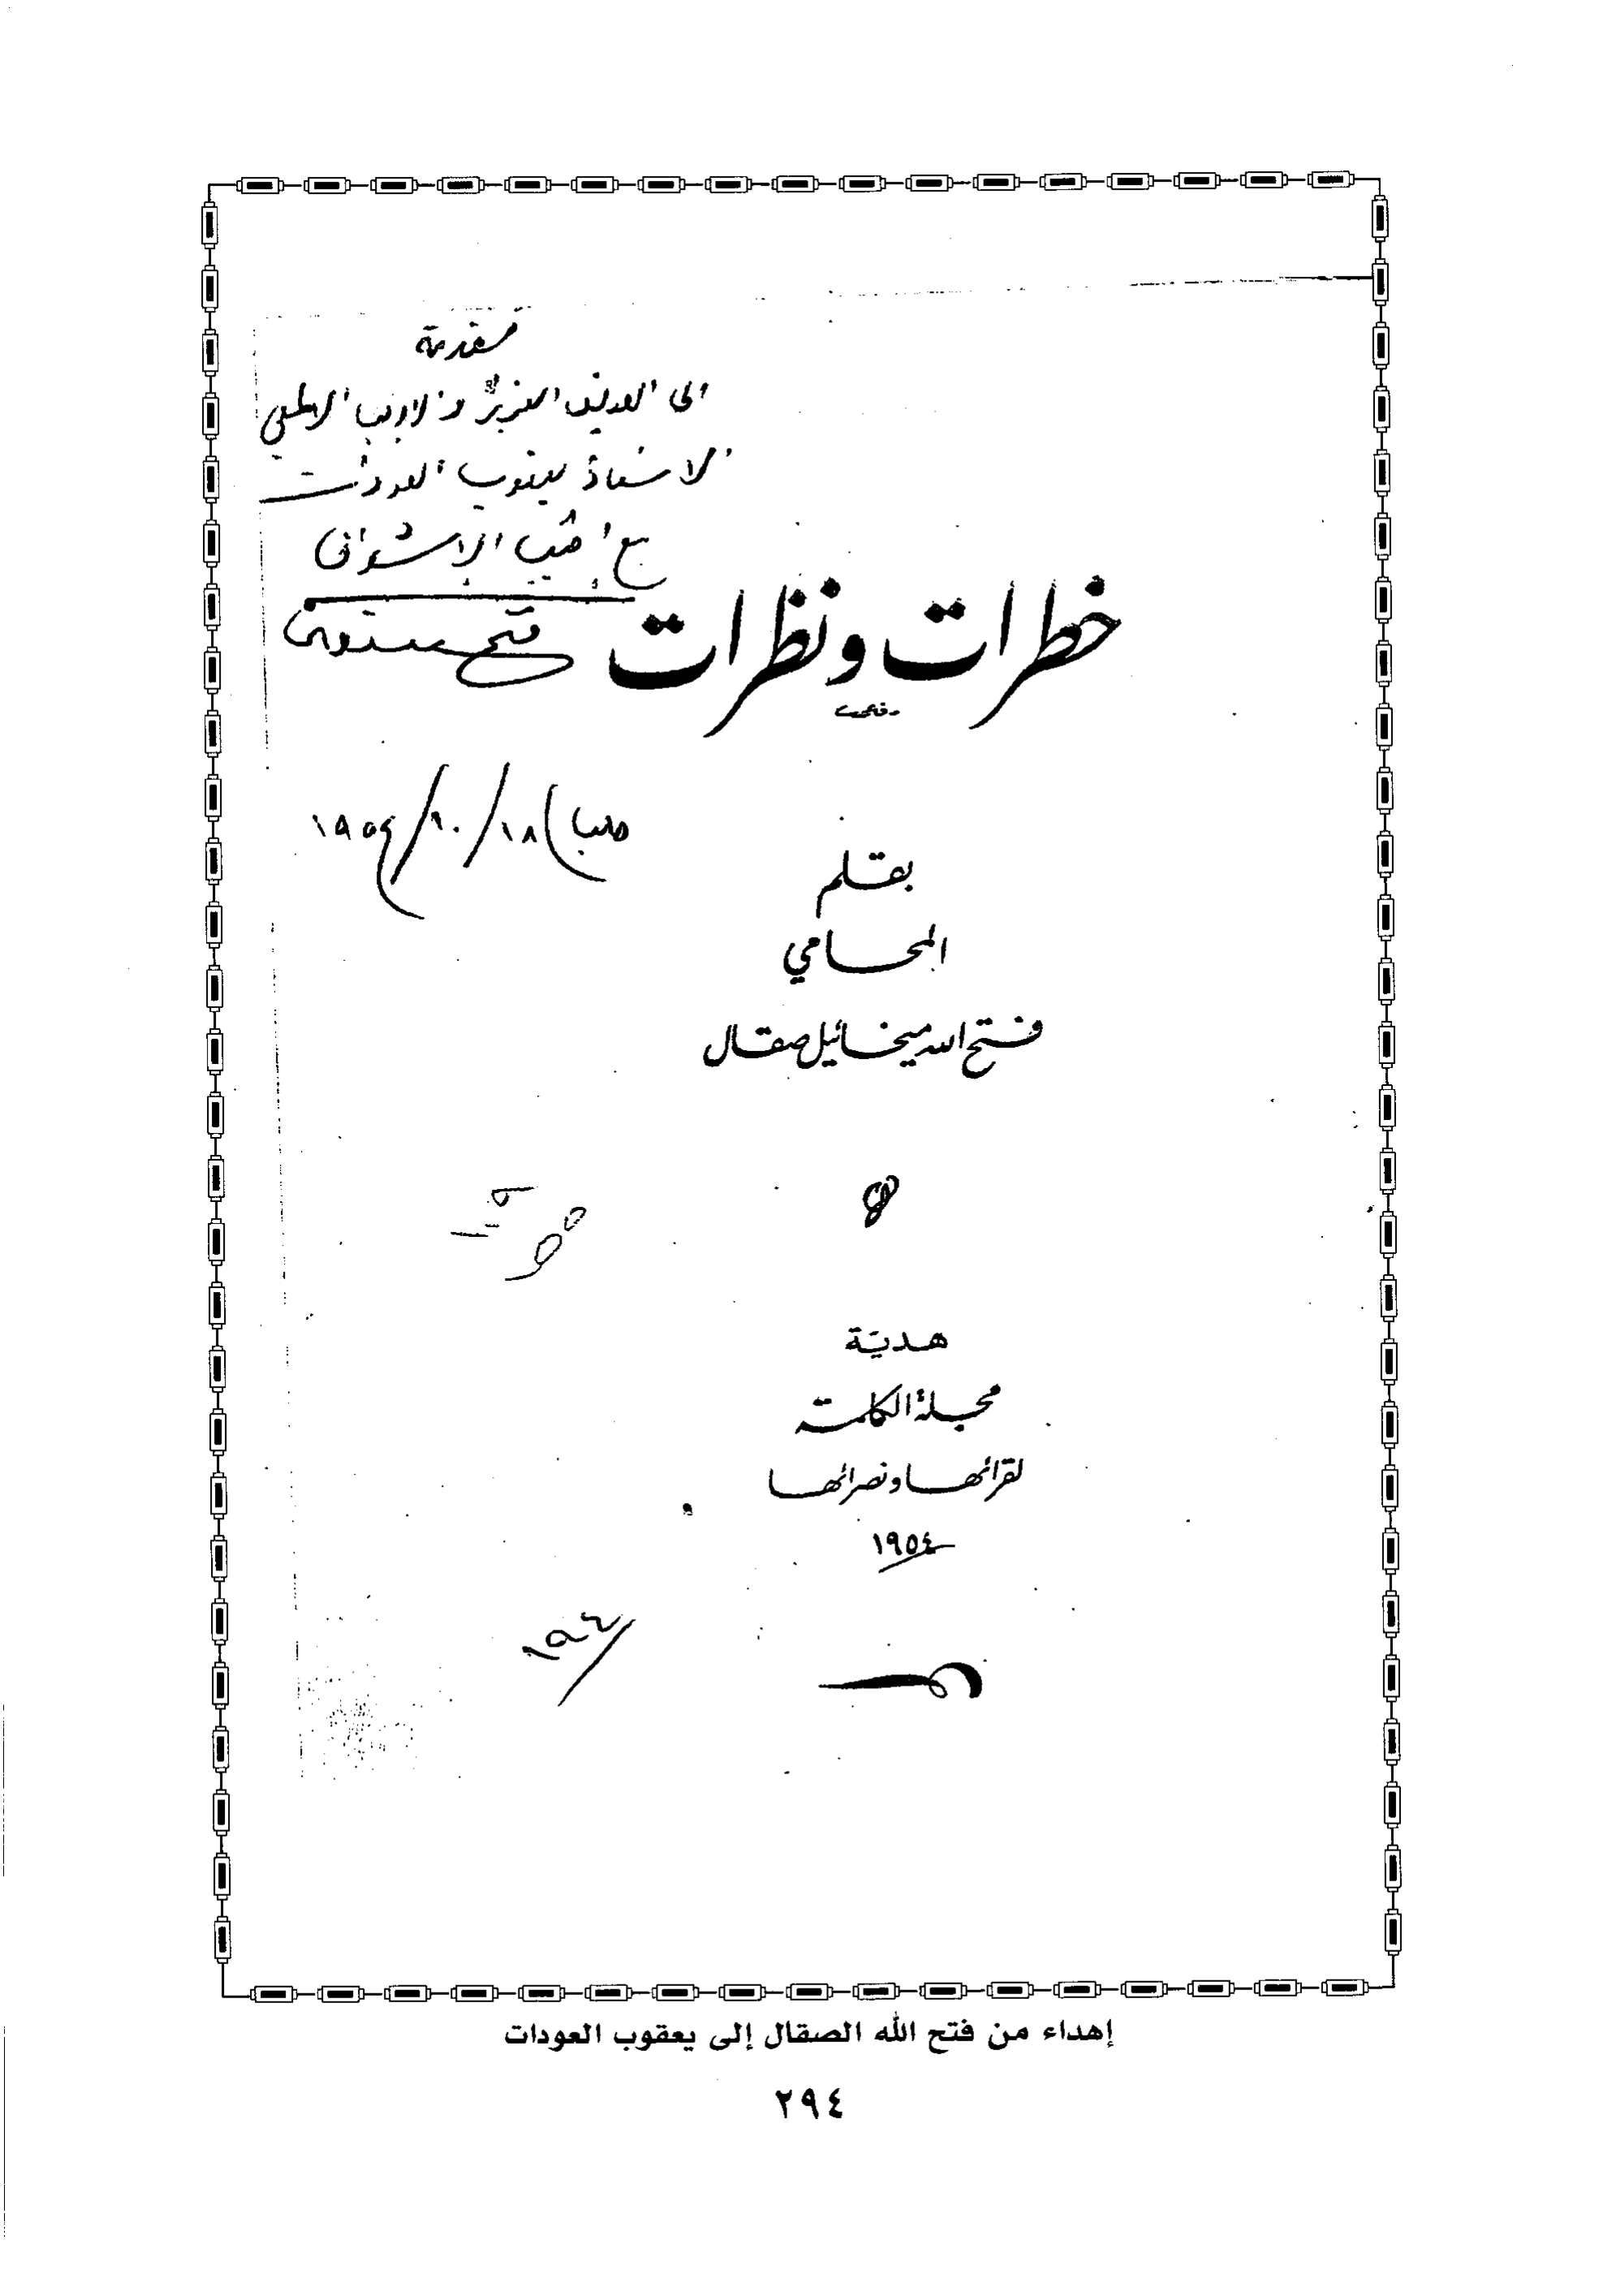 مقدمة
الى الصديق العزيز والاديب الالمعي
الاستاذ يعقوب العودات
مع اطيب الاشواق
خطرات ونظرات
بقلم
المحامي
فتح الله ميخائيل صقال
هدية
مجلة الكلمة
لقرائها ونصرائها
١٩٥٤
إهداء من فتح الله الصقال إلى يعقوب العودات
٢٩٤